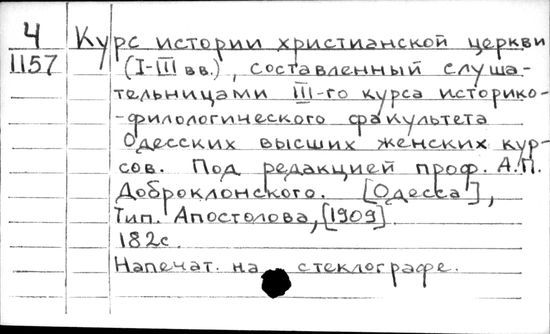 Ч
1157
Курс истории христианской церкви
(I-III вв.), составленный слуша-
тельницами III-го курса историко-
-филологического факультета
Одесских высших женских кур-
сов. Под редакцией проф. А.П.
Доброклонского. [Одесса],
Тип. Апостолова, [1909].
182с.
Напечат. на стеклографе.